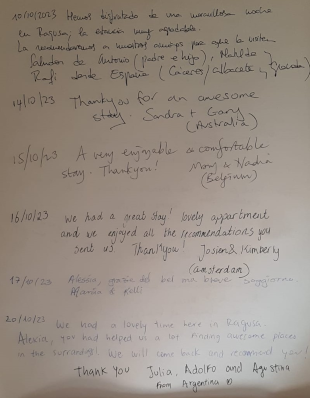 10/10/2023 Hemos disfrutado de una maravillosa noche
en Ragusa, la estancia muy agradable.
La recomendaremos a nuestros amigos para que la visiten
Saludos de Antonio (padre e hijo), Matilde
Rafi desde España (Cáceres/Albacete
14/10/23 Thankyou for an awesome
stay. Sandra + Gary
(Australia)
15/10/23 A very enjoyable & comfortable
stay. Thankyou! Mony & Nadia
(Belgium)
16/10/23 We had a great stay! lovely appartment
and we enjoyed all the recommendations you
sent us. Thankyou! Josien & Kimberly
(amsterdam)
17/10/23 Alessia, grazie del bel ma breve soggiorno
& Kelli
20/10/23 We had a lovely time here in Ragusa.
Alexia, you had helped us a lot finding awesome places
in the surroundings. We will come back and recommend your!
Thank you Julia, Adolfo and Agustina
from Argentina